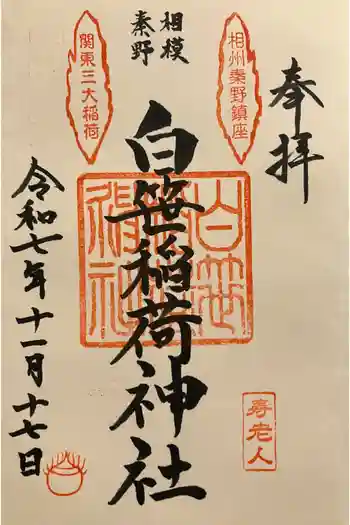 奉拝
相州秦野鎮座
相模
秦野
関東三大稲荷
白笹稲荷神社
白笹稲荷神社
寿老人
令和七年十一月十七日